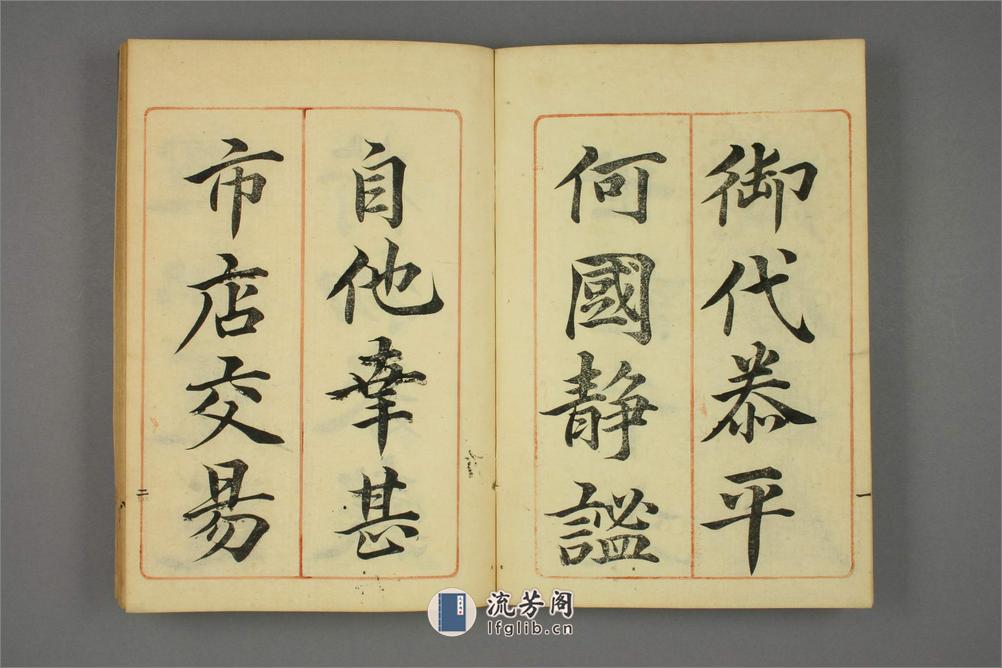 御代泰平
何國静謐
自他幸甚
市店交易
一
二
流芳阁
lfglib.cn